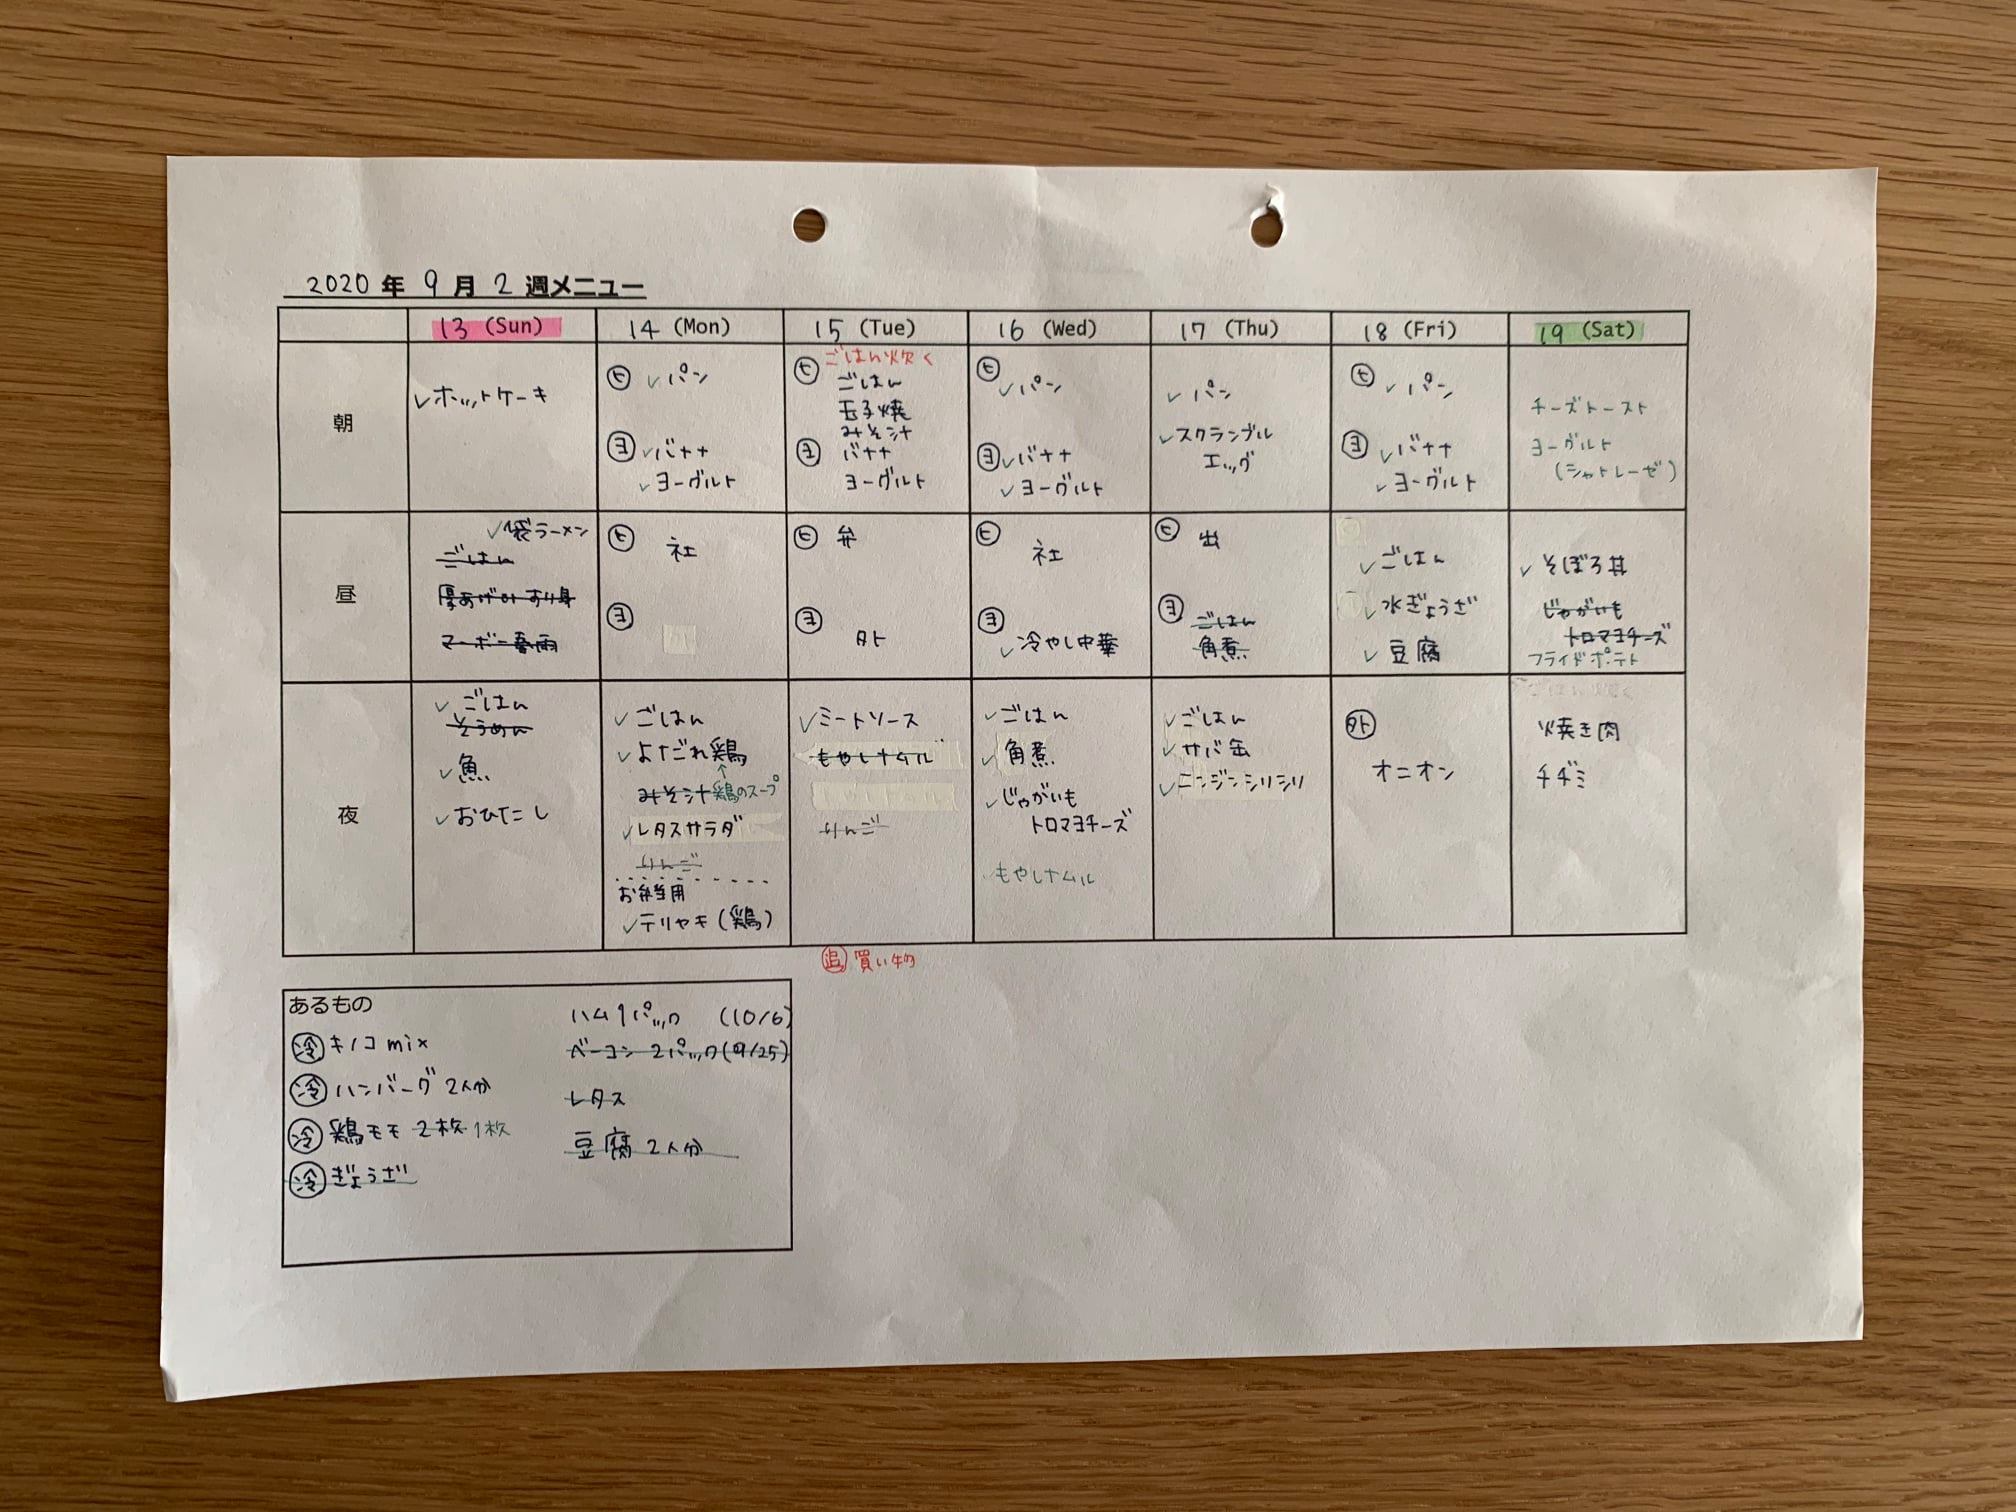 2020年 9月 2週メニュー
13 (Sun)
14 (Mon)
15 (Tue)
16 (Wed)
17 (Thu)
18 (Fri)
19 (Sat)
朝
✓ホットケーキ
ヒ ✓パン
ヨ ✓バナナ
✓ヨーグルト
ごはん炊く
ヒ ごはん
玉子焼
みそ汁
ヨ バナナ
ヨーグルト
ヒ ✓パン
ヨ ✓バナナ
✓ヨーグルト
✓パン
✓スクランブル
エッグ
ヒ ✓パン
ヨ ✓バナナ
✓ヨーグルト
チーズトースト
ヨーグルト
(シャトレーゼ)
昼
✓袋ラーメン
ごはん
厚あげのすり身
マーボー春雨
ヒ 社
ヨ
ヒ 弁
ヨ 外
ヒ 社
ヨ
✓冷やし中華
ヒ 出
ヨ ごはん
角煮
✓ごはん
✓水ぎょうざ
✓豆腐
✓そぼろ丼
じゃがいも
トロマヨチーズ
フライドポテト
夜
✓ごはん
そうめん
✓魚
✓おひたし
✓ごはん
✓よだれ鶏
↑
みそ汁 鶏のスープ
✓レタスサラダ
りんご
お弁当用
✓テリヤキ(鶏)
✓ミートソース
もやしナムル
りんご
✓ごはん
✓角煮
✓じゃがいも
トロマヨチーズ
もやしナムル
✓ごはん
✓サバ缶
✓ニンジンシリシリ
外
オニオン
ごはん炊く
焼き肉
チヂミ
追 買い物
あるもの
冷 キノコmix
冷 ハンバーグ 2人分
冷 鶏モモ 2枚 1枚
冷 ぎょうざ
ハム1パック (10/6)
ベーコン 2パック(9/25)
レタス
豆腐 2人分